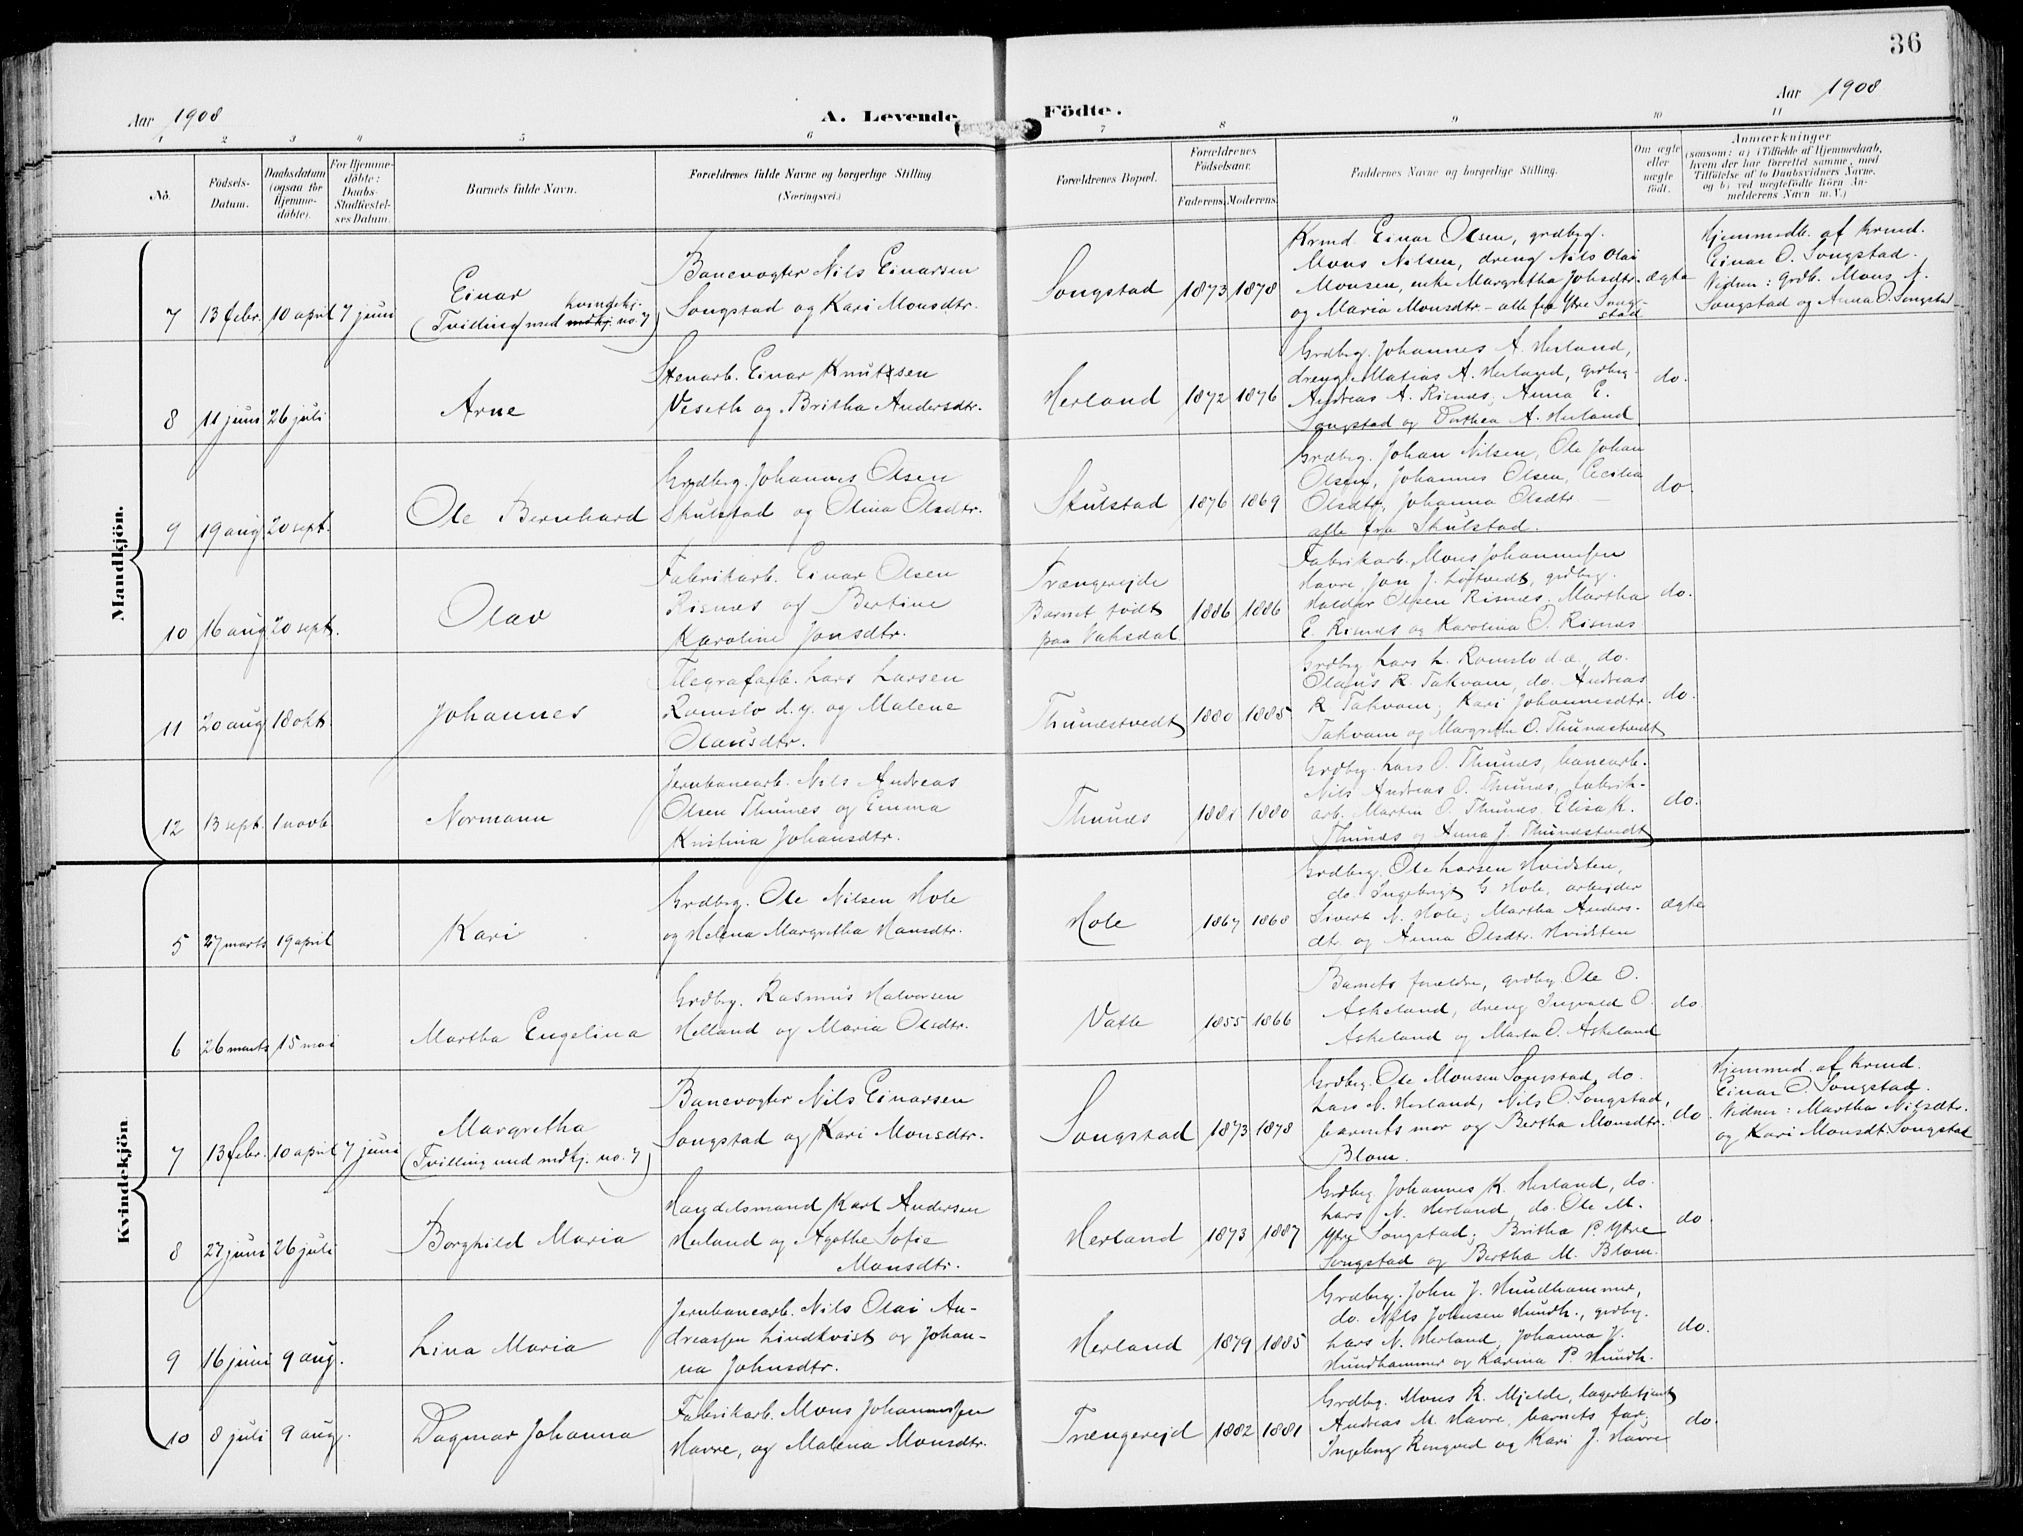 36
Aar 1908
A. Levende
Födte.
Aar 1908
1 2 3 4 5 6 7 8 9 10 11
No.
Födsels-
Datum.
Daabsdatum
(ogsaa for
Hjemme-
döbte).
For Hjemme-
döbte:
Daabs-
Stadfæstel-
ses Datum.
Barnets fulde Navn.
Forældrenes fulde Navne og borgerlige Stilling
(Næringsvei.)
Forældrenes Bopæl.
Forældrenes
Födselsaar.
Faderens. Moderens.
Faddernes Navne og borgerlige Stilling.
Om ægte
eller
uægte
födt.
Anmærkninger
(saasom: a) i Tilfælde af Hjemmedaab,
hvem der har forrettet samme, med
Tilföielse af to Daabsvidners Navne,
og b) ved uægtefödte Börn An-
melderens Navn m. V.)
Mandkjön.
7 13 febr. 10 april 7 juni
Einar
kvindekj.
(Tvilling med mdkj. no. 7)
Banevogter Nils Einarsen
Songstad og Kari Monsdtr.
Songstad 1873 1878
Krmd. Einar Olsen, grdbrg.
Mons Nilsen, dreng Nils Olai
Monsen, enke Margretha Johsdtr.
og Maria Monsdtr. – alle fra Ytre Song-
stad
ægte
Hjemmedb. af krmd.
Einar O. Songstad.
Vidner: Grdb. Mons N.
Songstad og Anna O. Songstad
8 11 juni 26 juli
Arne
Stenarb. Einar Knutsen
Veseth og Britha Andersdtr.
Herland 1872 1876
Grdbrg. Johannes A. Herland,
dreng Matias A. Herland, grdbrg.
Andreas A. Risnes, Anna E.
Songstad og Dorthea A. Herland
do.
9 19 aug 20 sept.
Ole Bernhard
Grdbrg. Johannes Olsen
Skulstad og Olina Olsdtr.
Skulstad 1876 1869
Grdbrg. Johan Nilsen, Ole Johan
Olsen, Johannes Olsen, Cecilia
Olsdtr, Johanna Olsdtr –
alle fra Skulstad.
do.
10 16 aug 20 sept.
Olav
Fabrikarb. Einar Olsen
Risnes og Bertine
Karoline Jonsdtr.
Trængereide
Barnet födt
paa Vaksdal 1886 1886
Fabrikarb. Mons Johannessen
Havre, Jon J. Loftvedt, grdbrg.
Haldor Olsen Risnes, Martha
E. Risnes og Karolina O. Risnes
do.
11 20 aug 18 okt.
Johannes
Telegrafarb. Lars Larsen
Romslo d.y. og Malene
Olausdtr.
Thunestvedt 1880 1885
Grdbrg Lars L. Romslo d.æ., do.
Olaus R. Takvam, do. Andreas
R. Takvam, Kari Johannesdtr.
Takvam og Margrethe O. Thunestvedt
do.
12 13 sept. 1 novb.
Normann
Jernbanearb. Nils Andreas
Olsen Thunes og Emma
Kristina Johansdtr.
Thunes 1881 1880
Grdbrg. Lars O. Thunes, banearb.
Nils Andreas O. Thunes, fabrik-
arb. Martin O. Thunes, Elisa K.
Thunes og Anna J. Thunestvedt
do.
Kvindekjön
5 27 marts 19 april
Kari
Grdbrg. Ole Nilsen Hole
og Helena Margretha Hansdtr.
Hole 1867 1868
Grdbrg. Ole Larsen Hvidsten,
do. Ingebrigt G Hole, arbeider
Sivert N. Hole, Martha Anders-
dt. og Anna Olsdtr. Hvidsten
ægte
6 26 marts 15 mai
Martha Engelina
Grdbrg. Rasmus Halvorsen
Helland og Maria Olsdtr.
Vatle 1855 1866
Barnets forældre, grdbrg Ole O.
Askeland, dreng Ingvald O.
Askeland og Marta O. Askeland
do
7 13 febr. 10 april 7 juni
Margretha
(Tvilling med mdkj. no. 7)
Banevogter Nils Einarsen
Songstad og Kari Monsdtr.
Songstad 1873 1878
Grdbrg. Ole Monsen Songstad, do.
Lars N. Herland, Nils O. Songstad,
barnets mor og Bertha Monsdtr.
Blom.
do.
Hjemmed. af krmd.
Einar O Songstad.
Vidner: Martha Nilsdtr.
og Kari Monsdt. Songstad
8 27 juni 26 juli
Borghild Maria
Handelsmand Karl Andersen
Herland og Agathe Sofie
Monsdtr.
Herland 1873 1887
Grdbrg Johannes K. Herland, do.
Lars N. Herland, do. Ole M.
Ytre Songstad; Britha P. Ytre
Songstad og Bertha M. Blom.
do.
9 16 juni 9 aug.
Lina Maria
Jernbanearb. Nils Olai An-
dreassen Lindkvist og Johan-
na Johnsdtr.
Herland 1879 1885
Grdbrg. John J. Hundhammer,
do. Nils Johnsen Hundh., grdbrg.
Lars N. Herland, Johanna J.
Hundhammer og Karina P. Hundh.
do.
10 8 juli 9 aug.
Dagmar Johanna
Fabrikarb. Mons Johannessen
Havre, og Malena Monsdtr.
Trængereid 1882 1881
Grdbrg. Mons R. Mjelde, lagerbetjent
Andreas M. Havre, barnets far,
Ingeborg Rongved og Kari J. Havre
do.